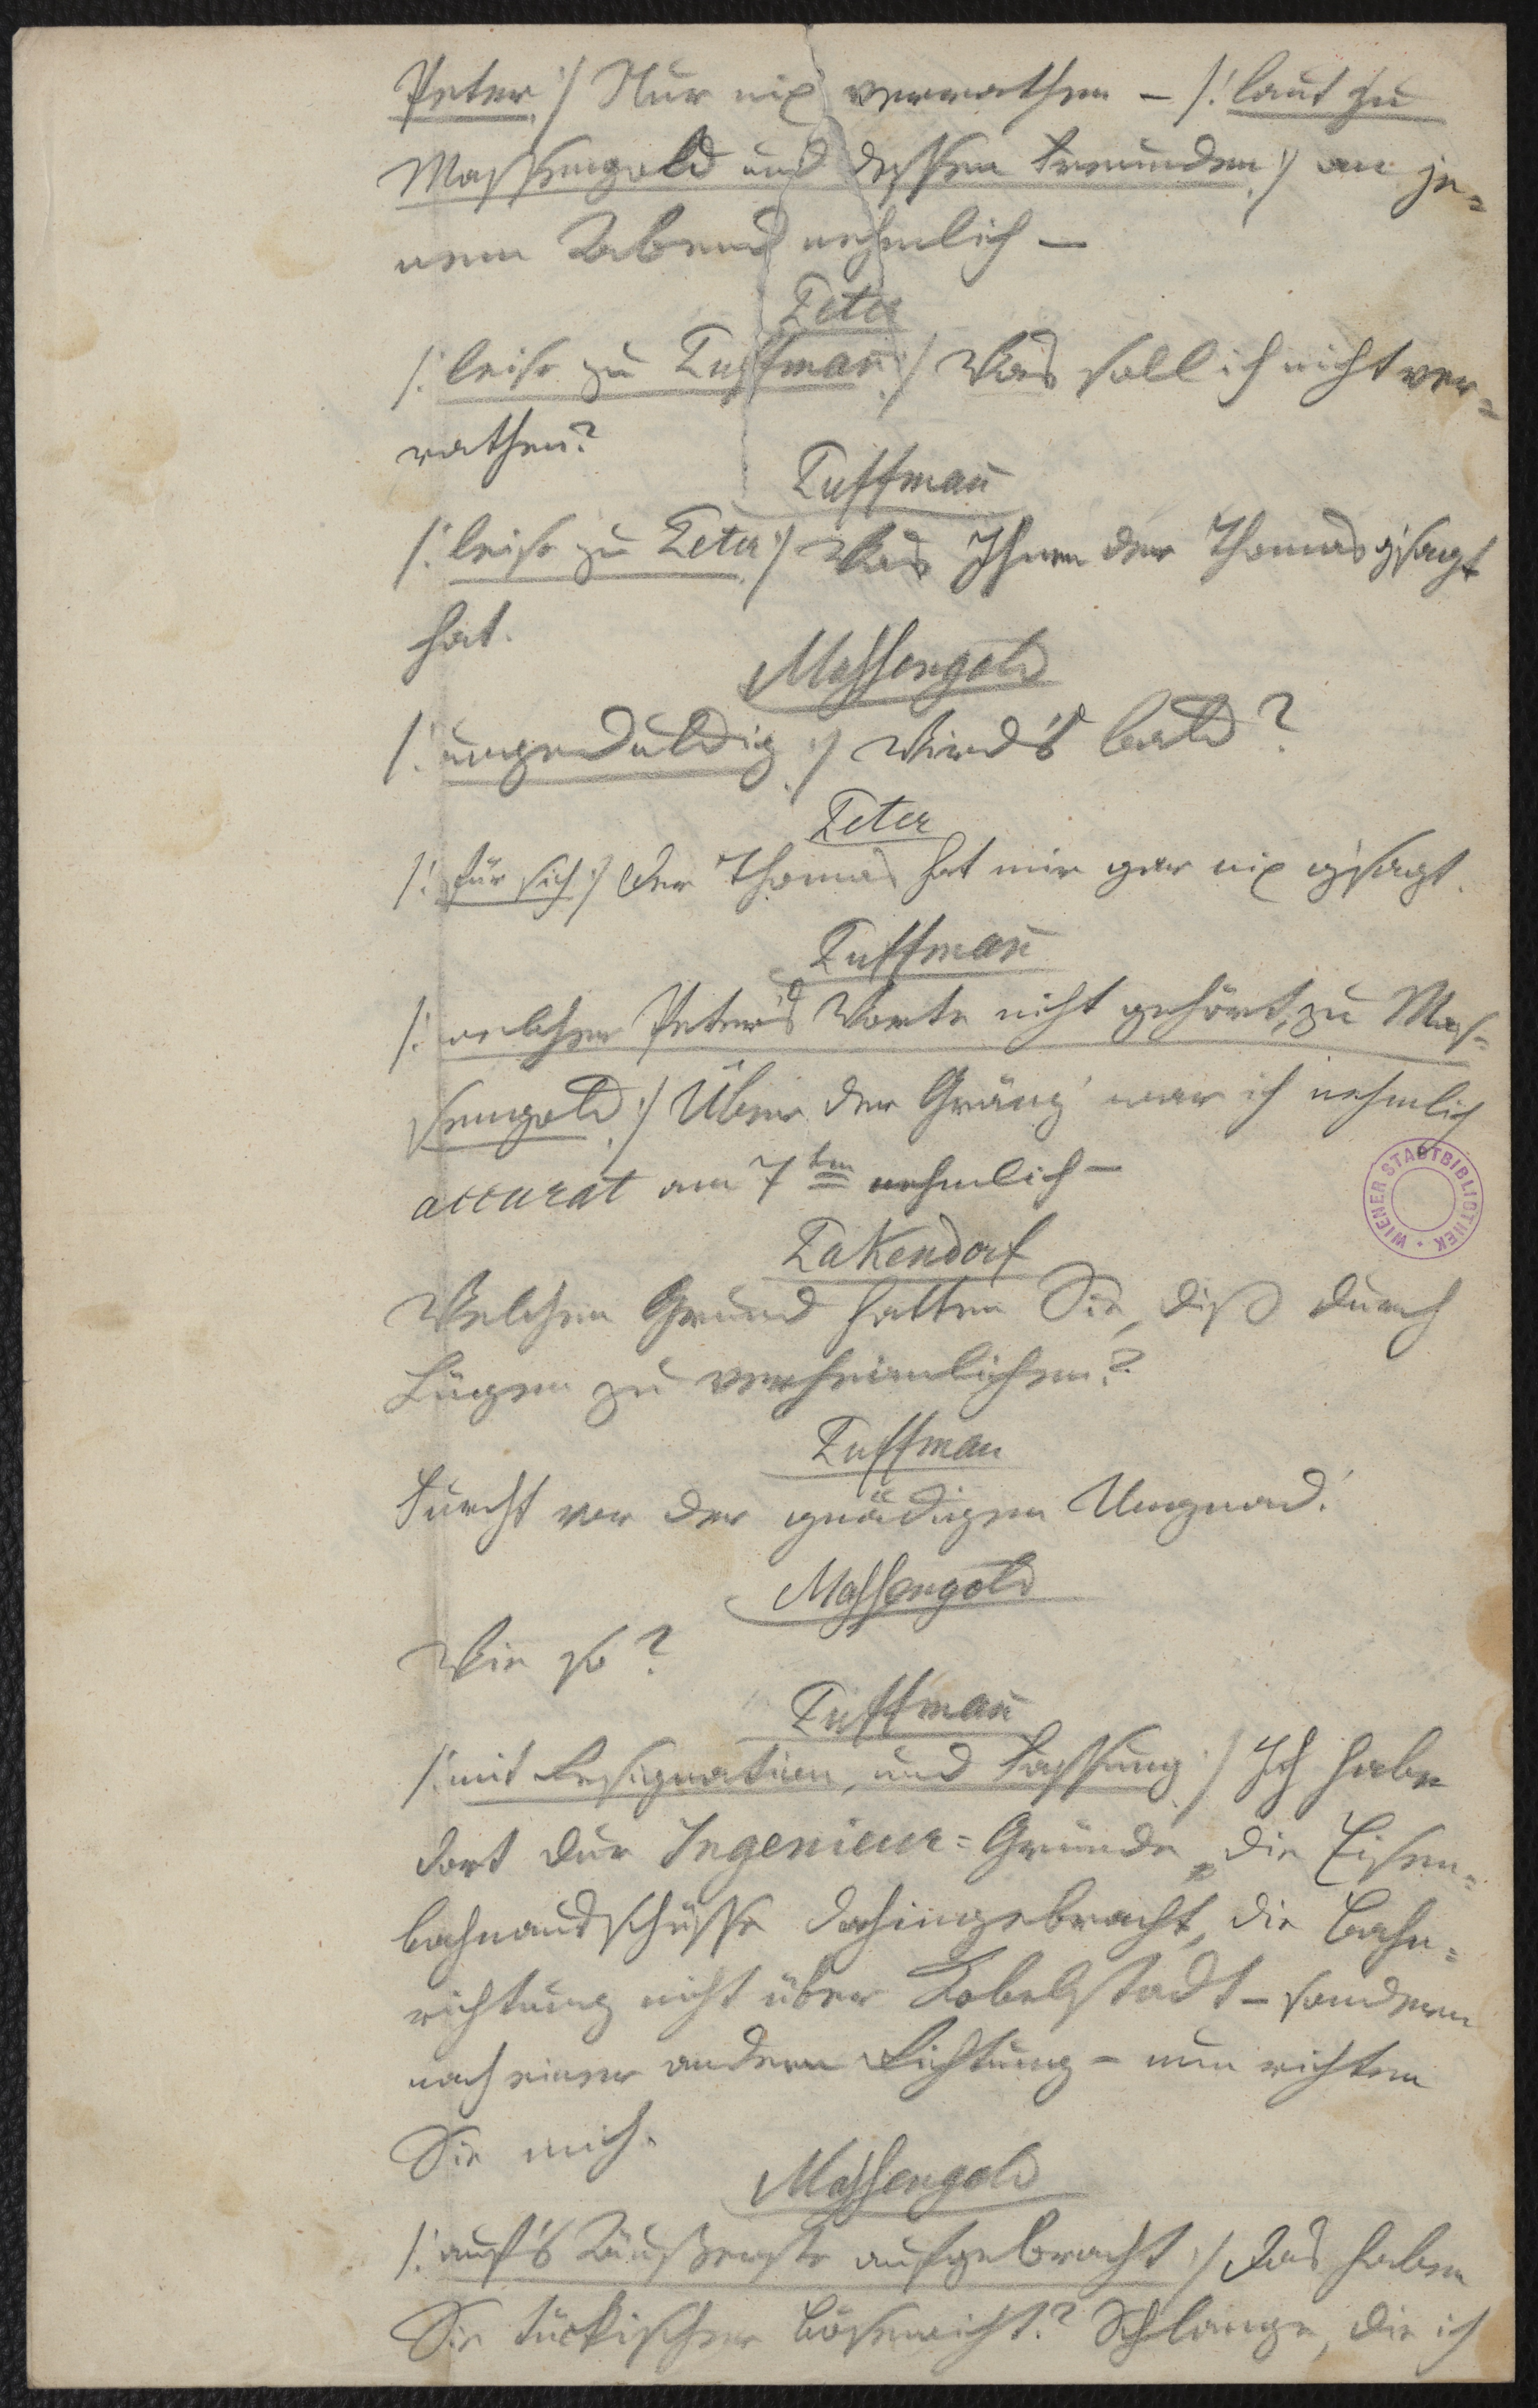 Peter :/ Nur nix verrathen – /: laut zu
Massengold und dessen Freunden :/ an je=
nem Abend nehmlich –
Peter
/: leise zu Puffmann :/ Was soll ich nicht ver=
rathen?
Puffmann
/: leise zu Peter :/ Was Ihnen der Thomas g'sagt
hat.
Massengold
/: ungeduldig :/ Wird's bald?
Peter
/: für sich :/ Der Thomas hat mir gar nix g'sagt.
Puffmann
/: welcher Peter's Worte nicht gehört, zu Mas=
sengold :/ Über der Gränz' war ich nehmlich
accurat am 7ten nehmlich –
Pakendorf
Welchen Grund hatten Sie, diß durch
Lügen zu verheimlichen?
Puffman
Furcht vor der gnädigen Ungnad'.
Massengold
Wie so?
Puffmann
/: mit Resignation, und Fassung :/ Ich habe
dort dur Ingenieur=Gründe, die Eisen=
bahnausschüsse dahingebracht, die Bahn=
richtung nicht über Kobelstadt – sondern
nach einer andern Richtung – nun richten
Sie mich.
Massengold
/: auf's Äußerste aufgebracht :/ Das haben
Sie tückischer Bösewicht? Schlange, die ich
WIENER STADTBIBLIOTHEK